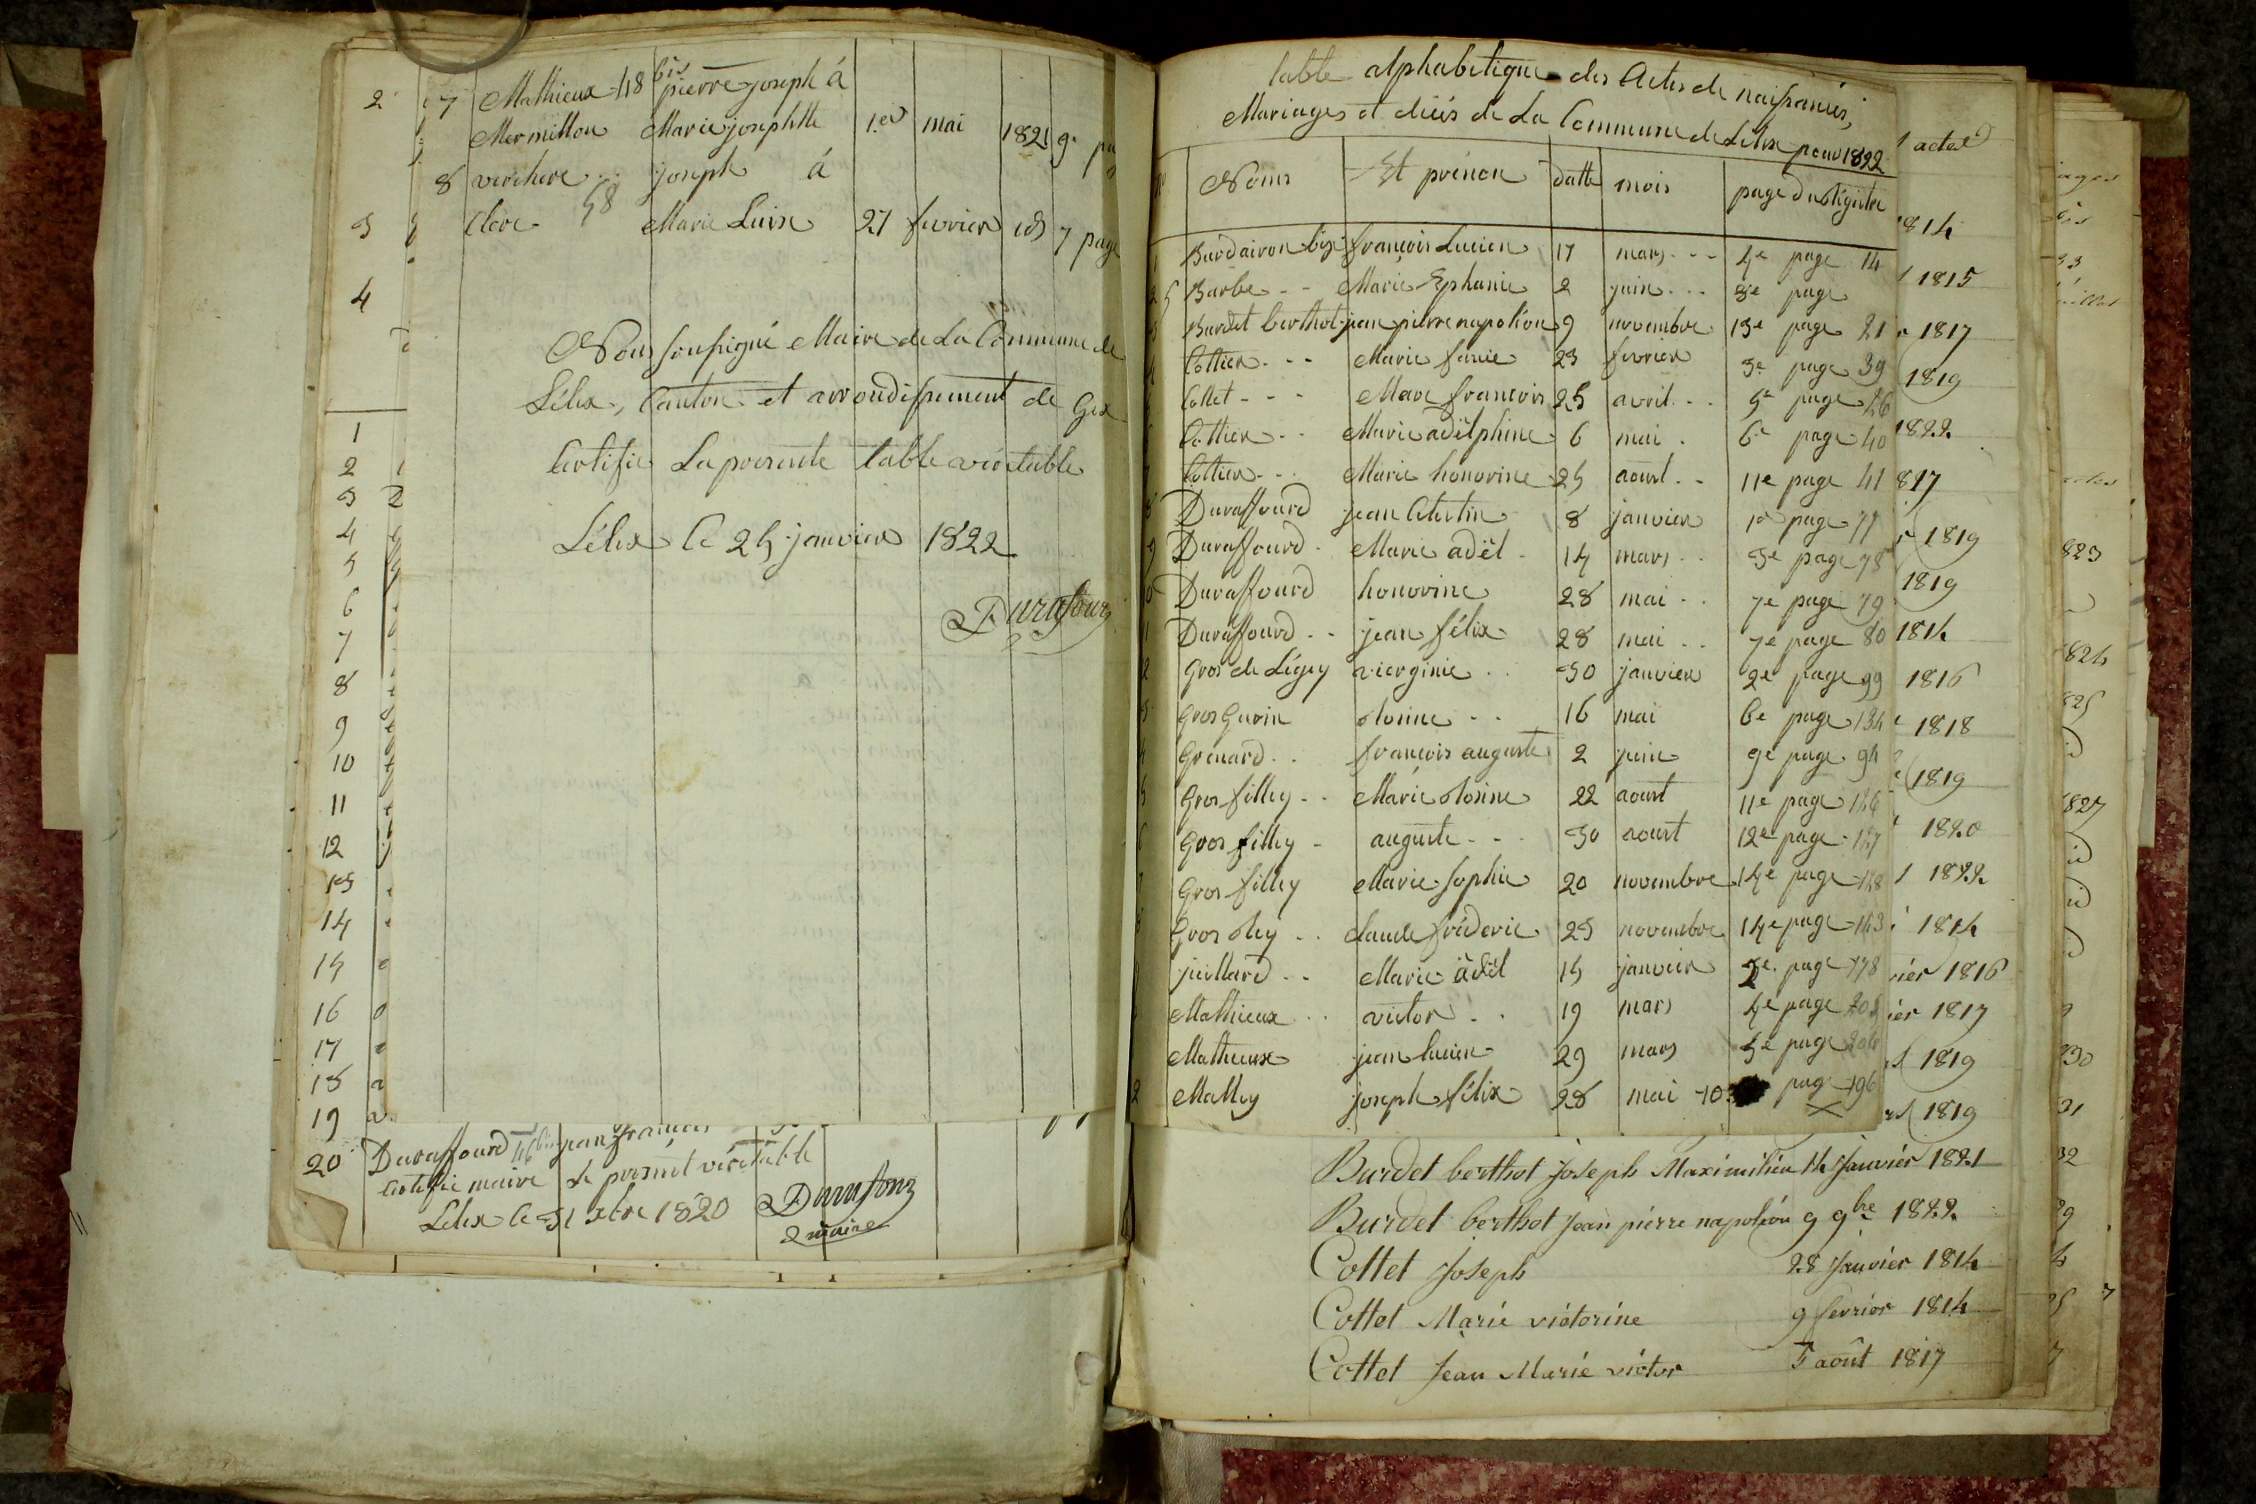 2 7 Mathieux 48 bis pierre joseph á
Mermillon Marie josephtte 1.er mai 1821 9e
8 verchere joseph á
58
3 Clerc Marie Luise 27 fevrier id 7 page
4
Nous soussigné Maire de La Commune de
Lélex, Canton et arrondissement de Gex
Certifie La presente table veritable
Lélex le 25 janvier 1822
Durafour
1
2
3
4
5
6
7
8
9
10
11
12
13
14
15
16
17
18
19
20 Duraffourd jean françois
Certifie maire Le present véritable
Lelex le 31 xbre 1820 Durafour
maire
table alphabetique des Actes de naissances,
Mariages et décés de La Commune de Lélex pour 1822
Noms Et prénon datte mois page du Régistre
Burdairon bizi françois Lucien 17 mars 4e page 14
Barbe Marie Ephanie 2 juin 8e page
Burdet berthot jean pierre napoléon 9 novembre 13e page 21
Cottier Marie fanie 23 fevrier 3e page 39
Collet Marc françois 25 avril 5e page 26
Cottier Marie adelphine 6 mai 6e page 40
Cottier Marie honorine 25 aoust 11e page 41
Duraffourd jean 8 janvier 1er page 77
Duraffourd Marie adèl 14 mars 3e page 78
Duraffourd honorine 28 mai 7e page 79
Duraffourd jean félix 28 mai 7e page 80
Gros de Légey vierginie 30 janvier 2e page 99
Gros Gurin rosine 16 mai 6e page 134
Grenard françois auguste 2 juin 9e page 94
Gros filley Marie rosine 22 aoust 11e page 126
Gros filley auguste 30 aoust 12e page 127
Gros filley Marie sophie 20 novembre 14e page 128
Gros Rey claude fréderic 25 novembre 14e page 143
juillard Marie àdèl 15 janvier 2e page 178
Mathieux victor 19 mars 4e page 205
Mathieux jean lucien 29 mars 5e page 206
Malley joseph félix 28 mai page 196
actes
1814
1815
1817
1819
1822
1817
1819
1819
1814
1816
1818
1819
1820
1822
1814
1816
1817
1819
1819
Burdet berthot Joseph Maximilien 14 Janvièr 1821
Burdet berthot Jean pierre napoléon 9 9bre 1822
Cottet Joseph 28 Janvier 1814
Cottet Marie victorine 9 fevrier 1814
Cottet Jean Marie victor 5 août 1817